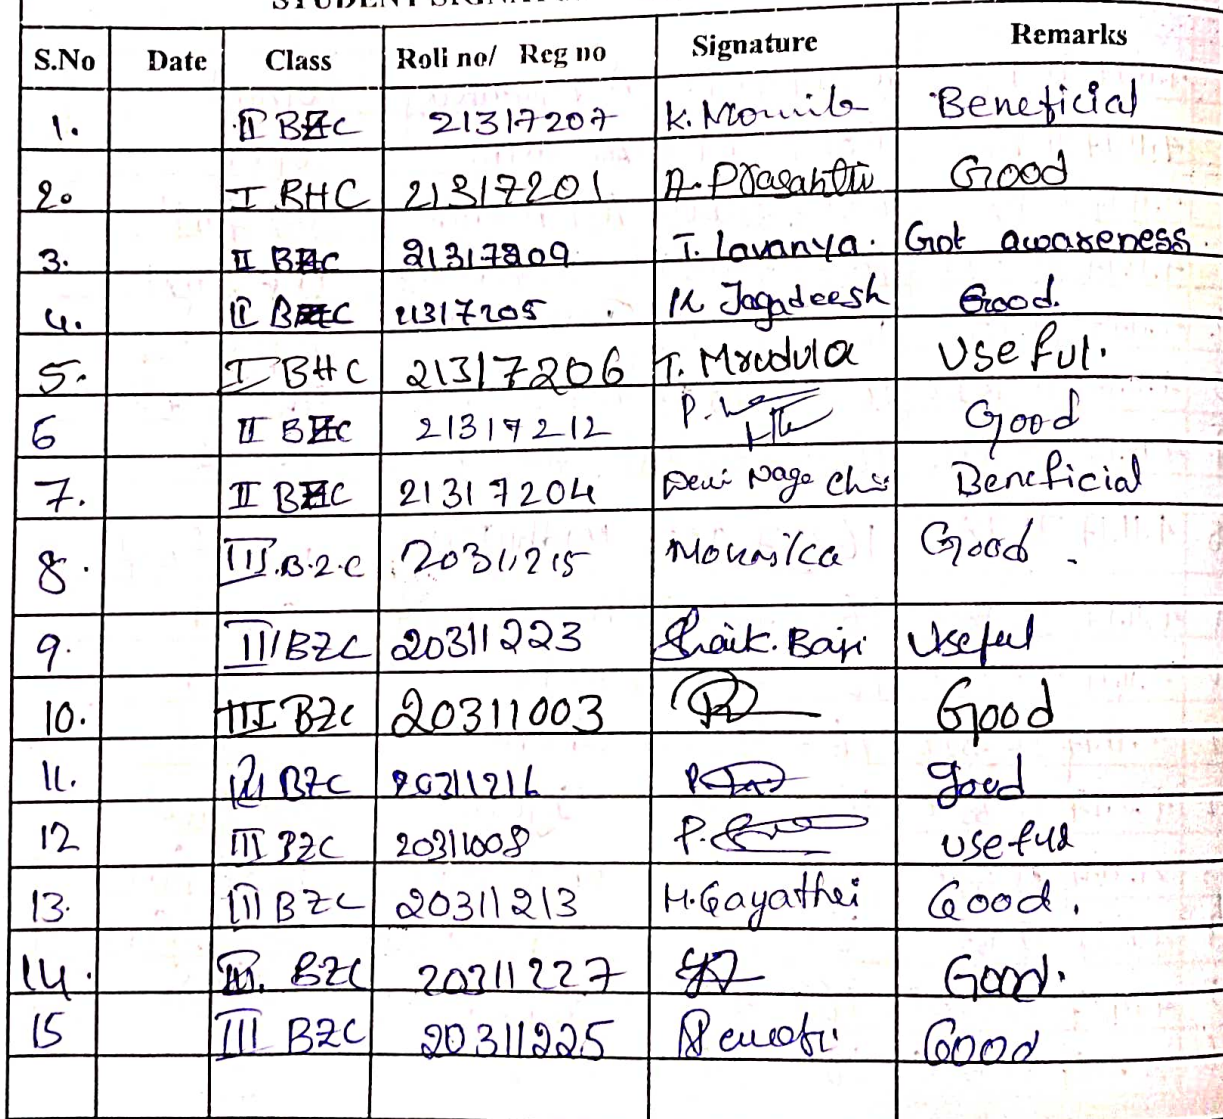 S.No Date Class Roll no/ Reg no Signature Remarks
1. II BHC 21317207 K. Mounika Beneficial
2. I BHC 21317201 A. Prasanthi Good
3. II BHC 21317209 T. Lavanya. Got awareness.
4. II BHC 21317205 K Jagadeesh Good.
5. I BHC 21317206 T. Mrudula Useful.
6 II BHC 21317212 P. Good
7. II BHC 21317204 Devi Naga Beneficial
8. III.B.Z.C 20311215 Mounika Good.
9. III BZC 20311223 Shaik. Baji Useful
10. III BZC 20311003 Good
11. III BZC 20311216 good
12 III BZC 20311008 P. useful
13. III BZC 20311213 H. Gayathri Good.
14. III. BZC 20311227 Good.
15 III BZC 20311225 Revathi Good